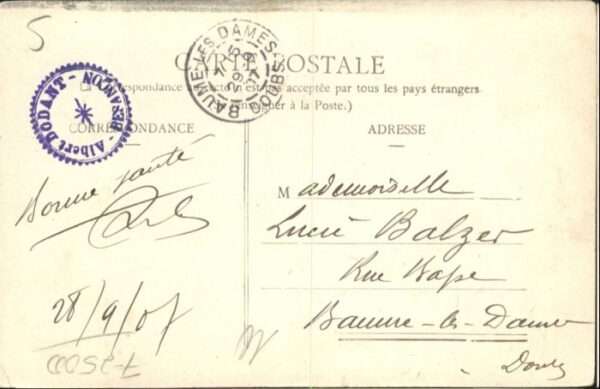 5
CARTE POSTALE
BAUME-LES-DAMES
DOUBS
7 S
29 9
07
Albert DODANT - BESANÇON
La Correspondance au recto n'est pas acceptée par tous les pays étrangers
(Se renseigner à la Poste.)
CORRESPONDANCE
ADRESSE
Bonne santé
28/9/07
Mademoiselle
Lucie Balzer
Rue
Baume-les-Dames
Doubs